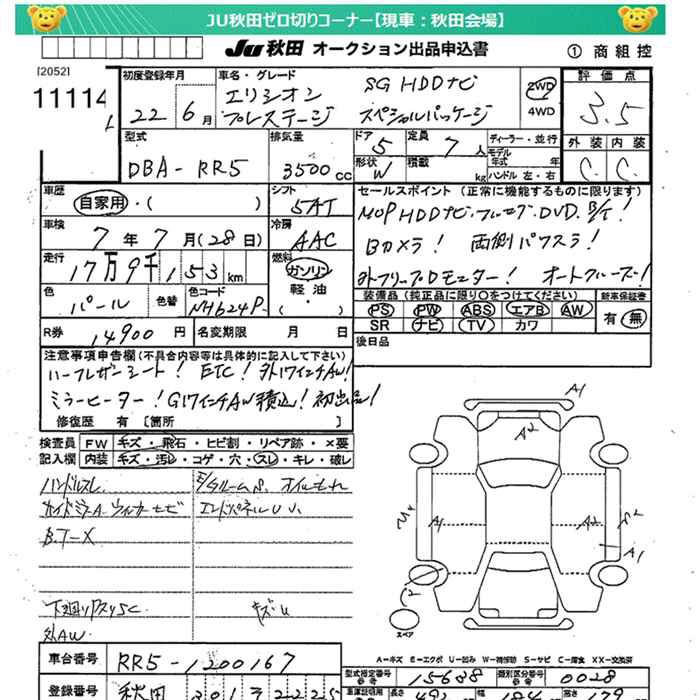 JU秋田ゼロ切りコーナー【現車：秋田会場】
JU秋田 オークション出品申込書
① 商組控
[2052]
11114
初度登録年月
22 6月
車名・グレード
エリシオン SG HDDナビ
プレステージ スペシャルパッケージ
2WD
4WD
評価点
3.5
外装 内装
C. C.
型式
DBA-RR5
排気量
3500cc
ドア 5
形状 W
定員 7人
積載 kg
ディーラー・並行
モデル年式 年
ハンドル 左・右
車歴
自家用・( )
シフト
5AT
車検
7年7月(28日)
冷房
AAC
走行
17万9千153km
燃料
ガソリン
軽油
・( )
色
パール
色替
色コード
NH624P
セールスポイント (正常に機能するものに限ります)
MOP HDDナビ・フルセグ・DVD・B/T!
Bカメラ! 両側パワスラ!
外フリップDモニター! オートクルーズ!
装備品 (純正品に限り○をつけてください)
PS PW ABS エアB AW
SR ナビ TV カワ
新車保証書
有・無
R券 14900円
名変期限 月 日
後日品
注意事項申告欄 (不具合内容等は具体的に記入して下さい)
ハーフレザーシート! ETC! 外17インチAW!
ミラーヒーター! G17インチAW積込! 初出品!
修復歴 有 [箇所 ]
検査員記入欄
FW キズ・飛石・ヒビ割・リペア跡・×要
内装 キズ・汚レ・コゲ・穴・スレ・キレ・破レ
ハンドルスレ
B.T-X
下廻りサスリSC
キズU
外AW
A1
A2
A1
A2
A1
スペア
A=キズ E=エクボ U=凹み W=補修跡 S=サビ C=腐食 XX=交換済
車台番号
RR5-1200167
型式指定番号
15688
類別区分番号
0028
登録番号
秋田 301 そ 2225
長さ